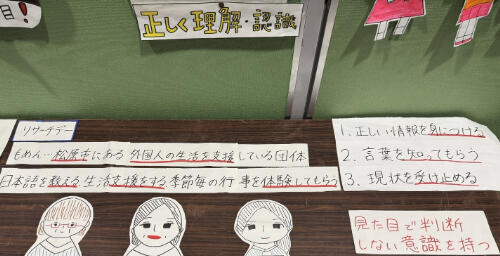 正しく理解・認識
リサーチデー
もめん…松原市にある外国人の生活を支援している団体
日本語を教える生活支援をする季節毎の行事を体験してもらう
1.正しい情報を身につける
2.言葉を知ってもらう
3.現状を受け止める
見た目で判断
しない意識を持つ